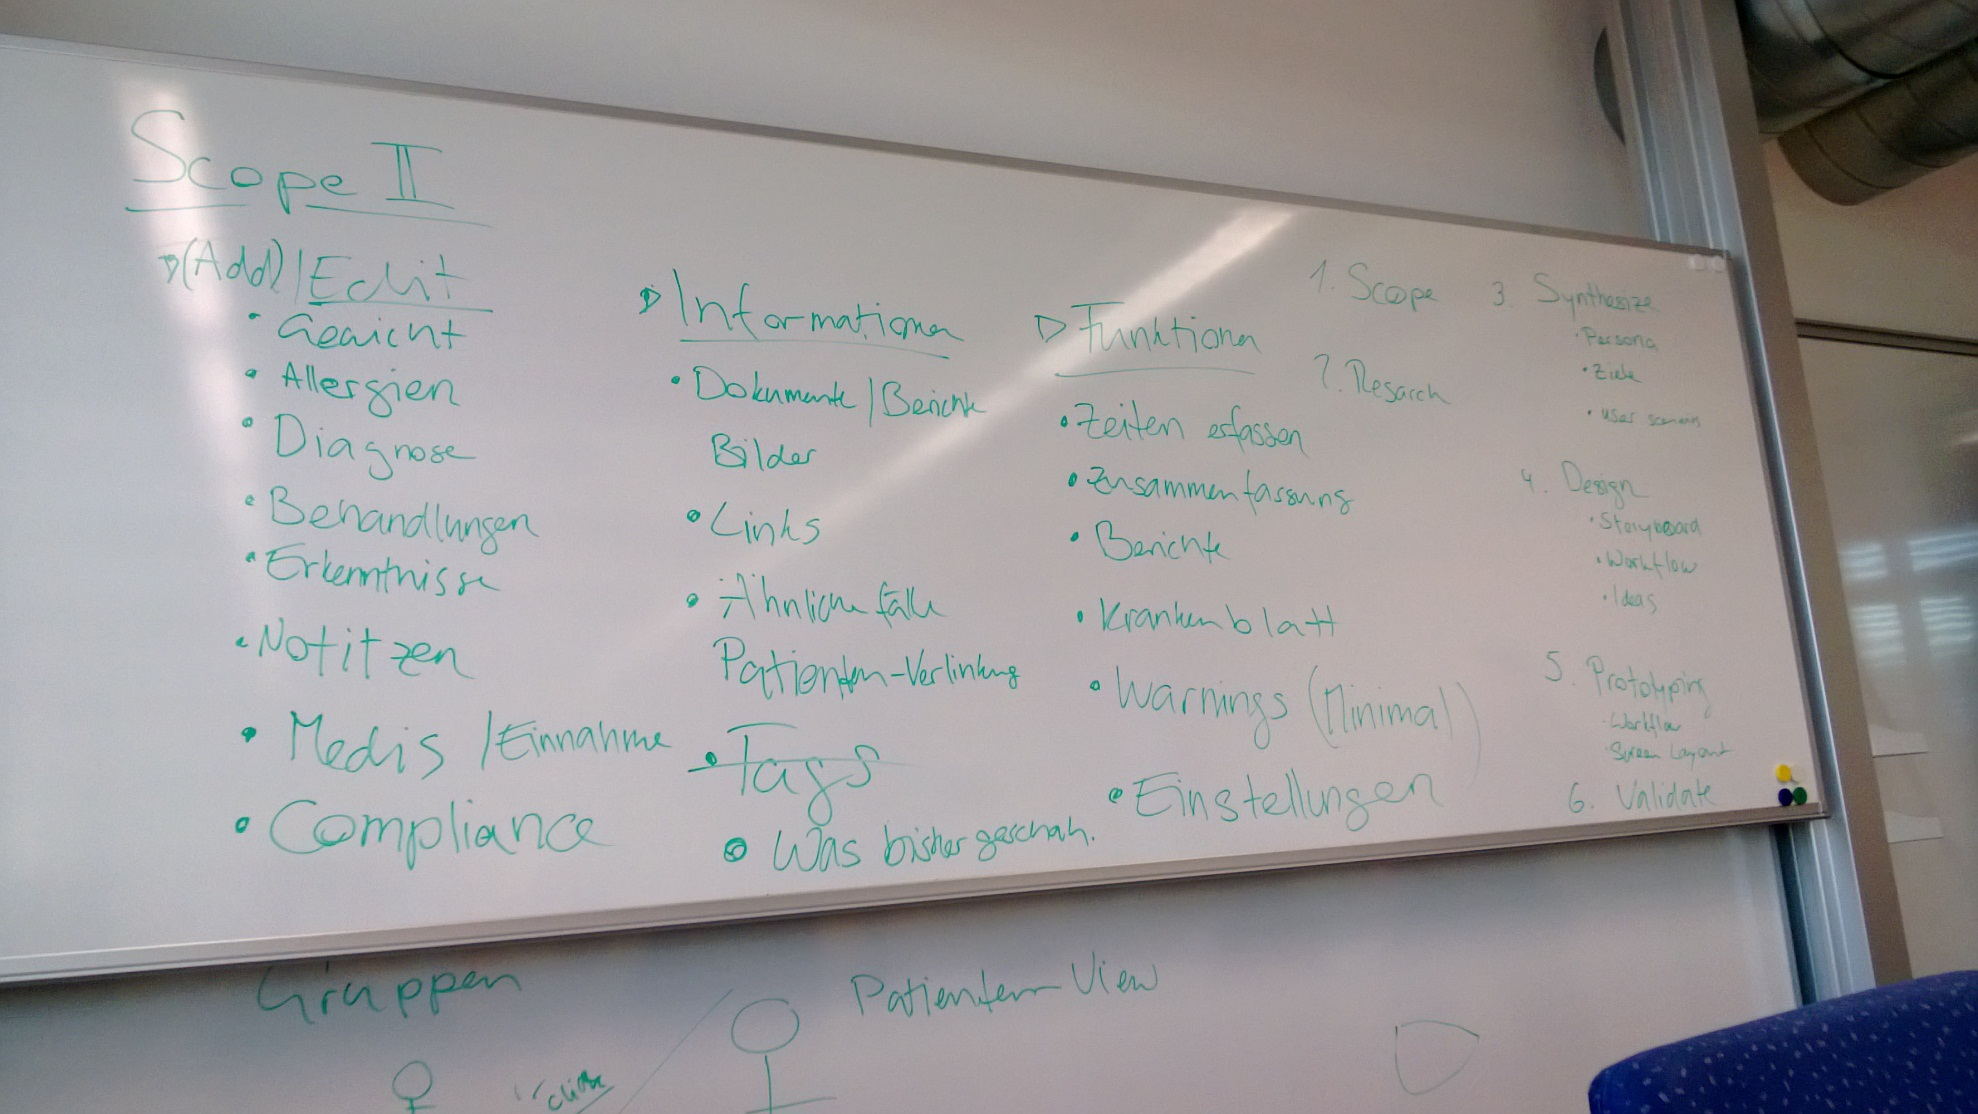 Scope II
(Add)/Edit
• Gewicht
• Allergien
• Diagnose
• Behandlungen
• Erkenntnisse
• Notitzen
• Medis / Einnahme
• Compliance
Informationen
• Dokumente / Berichte
Bilder
• Links
• Ähnliche fälle
Patienten-Verlinkung
• Tags
• Was bisher geschah.
Funktionen
• Zeiten erfassen
• Zusammenfassung
• Berichte
• Krankenblatt
• Warnings (Minimal)
• Einstellungen
1. Scope
2. Resarch
3. Synthesize
• Persona
• Ziele
• user
4. Design
• Storyboard
• Workflow
• Ideas
5. Prototyping
• Workflow
• Screen Layout
6. Validate
Gruppen
Patienten-View